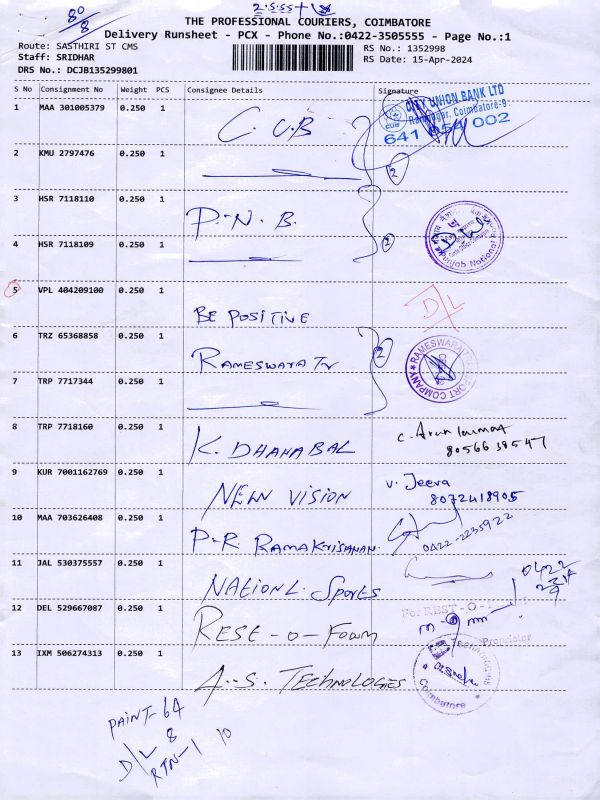 80/8
2.5.55
THE PROFESSIONAL COURIERS, COIMBATORE
Delivery Runsheet - PCX - Phone No.:0422-3505555 - Page No.:1
Route: SASTHIRI ST CMS
RS No.: 1352998
Staff: SRIDHAR
RS Date: 15-Apr-2024
DRS No.: DCJB135299801
S No Consignment No Weight PCS Consignee Details Signature
1 MAA 301005379 0.250 1 C.U.B
CITY UNION BANK LTD
Ramnagar, Coimbatore-9.
CUB
641 054 002
2 KMU 2797476 0.250 1
2
3 HSR 7118110 0.250 1 P.N.B.
4 HSR 7118109 0.250 1
2
Punjab National
5 VPL 404209100 0.250 1 BE POSITIVE
D/L
6 TRZ 65368858 0.250 1 RAMESWARA Tr
2
7 TRP 7717344 0.250 1
8 TRP 7718160 0.250 1 K. DHANABAL
C. Arun kumar
8056638547
9 KUR 7001162769 0.250 1 NEW VISION
V. Jeeva
8072418905
10 MAA 703626408 0.250 1 P.R. RAMAKRISHNAN
0422-2235922
11 JAL 530375557 0.250 1 NATIONL. Sports
0422
12 DEL 529667087 0.250 1 REST-O-FOAM
For REST-O-
Proprietor
13 IXM 506274313 0.250 1 A.S. TECHNOLOGIES
Technologies
Coimbatore
PAINT-64
D/L 8
RTN-1 10